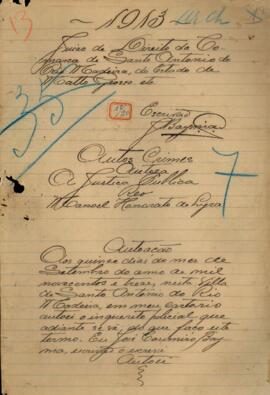 13
- 1913
Juizo de Direito da Co-
marca de Santo Antonio do
Rio Madeira, do Estado de
Matto Grosso etc
35
Escrivão
Bayma
7
Autos Crimes
Autora
A Justiça Publica
Reo
Manoel Honorato de Lyra
Autoação
Aos quinze dias do mez de
Setembro do anno de mil
novecentos e treze, nesta Villa
de Santo Antonio do Rio
Madeira, em meu cartorio
autoei o inquerito policial que
adiante se vê, do que faço este
termo. Eu José Bay-
ma, escrivão o escrevi
Autoei